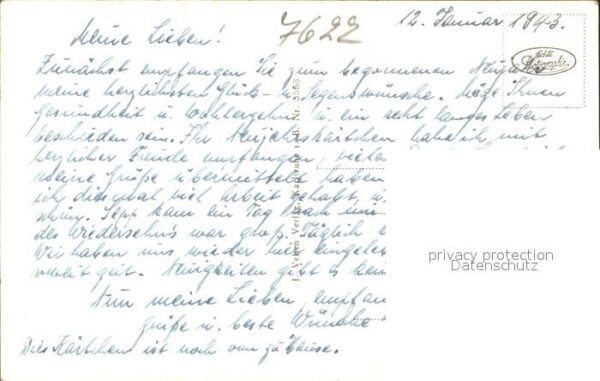 12. Januar 1943.
7622
Meine Lieben!
Echte Photographie
Zunächst empfangen Sie zum begonnenen Neujahr
meine herzlichsten Glück- u. Segenswünsche. Möge Ihnen
Gesundheit u. Wohlergehn u. ein recht langes Leben
beschieden sein. Ihr Neujahrskärtchen habe ich mit
herzlicher Freude empfangen, vielen
meine Grüße übermitteln, haben
ich diesmal viel Arbeit gehabt, u.
schön. Sepp kam ein Tag nach
des Wiedersehn's war groß. Täglich
Wir haben uns wieder hier eingeleb
soweit gut. Neuigkeiten gibt es kein
Nun meine Lieben, empfan
Grüße u. beste Wünsche
Dies Kärtchen ist noch von zu Hause.
Verlag, Karlsruhe
privacy protection
Datenschutz